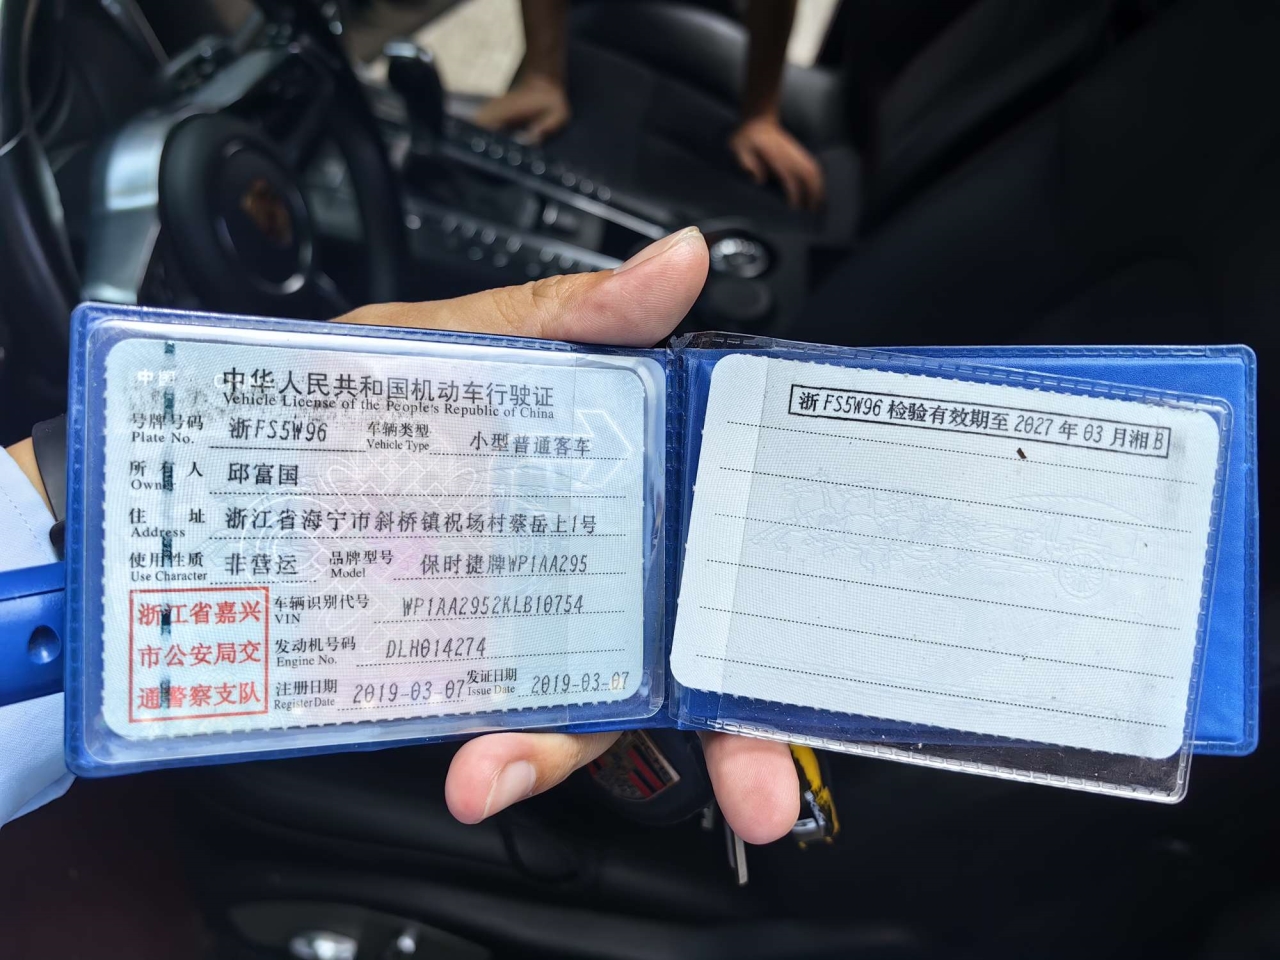 中国 CHINA
中华人民共和国机动车行驶证
Vehicle License of the People's Republic of China
号牌号码 浙FS5W96 车辆类型 小型普通客车
Plate No. Vehicle Type
所有人 邱富国
Owner
住址 浙江省海宁市斜桥镇祝场村蔡岳上1号
Address
使用性质 非营运 品牌型号 保时捷牌WP1AA295
Use Character Model
浙江省嘉兴
市公安局交
通警察支队
车辆识别代号 WP1AA2952KLB10754
VIN
发动机号码 DLH014274
Engine No.
注册日期 2019-03-07 发证日期 2019-03-07
Register Date Issue Date
浙FS5W96 检验有效期至 2027 年 03 月湘 B